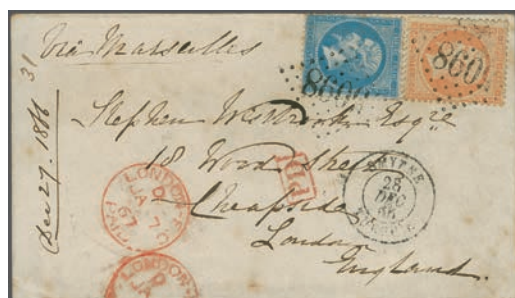 Via Marseilles
Dec 27. 1866
31
Stephen Westbrook Esqre
18 Wood Street
Cheapside
London
England.
PD
SMYRNE
28
DEC
66
LONDON-E
JA 7
67
PAID
LONDON
JA